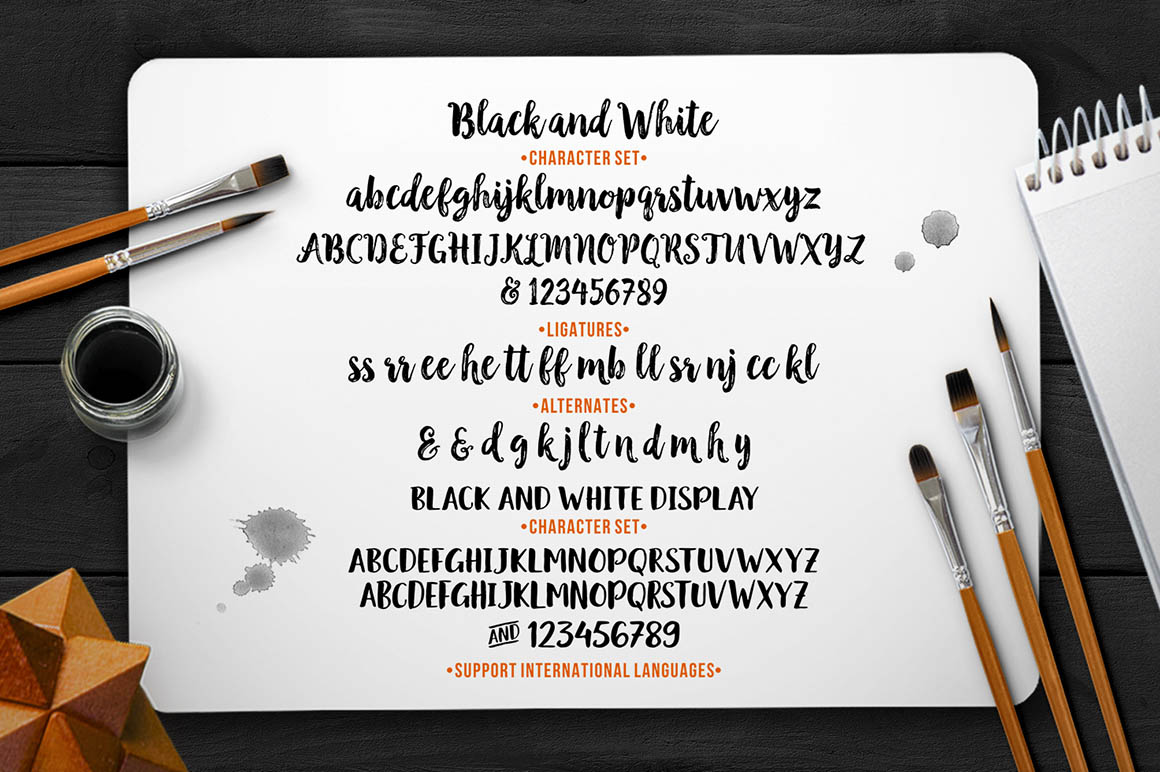 Black and White
•CHARACTER SET•
abcdefghijklmnopqrstuvwxyz
ABCDEFGHIJKLMNOPQRSTUVWXYZ
& 123456789
•LIGATURES•
ss rr ee he tt ff mb ll sr nj cc kl
•ALTERNATES•
& & d g k j l t n d m h y
BLACK AND WHITE DISPLAY
•CHARACTER SET•
ABCDEFGHIJKLMNOPQRSTUVWXYZ
ABCDEFGHIJKLMNOPQRSTUVWXYZ
AND 123456789
•SUPPORT INTERNATIONAL LANGUAGES•